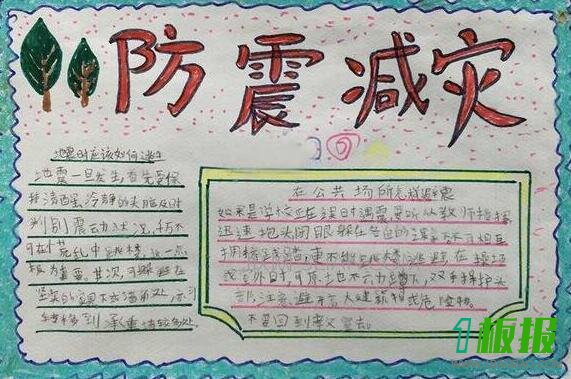 防震减灾
地震时应该如何逃生
地震一旦发生首先要保
持清醒冷静的头脑及时
判别震动状况，切不
可在慌乱中跳楼，这一点
极为重要。其次，可躲避在
坚实的家具下或墙角处，亦可
转移到承重墙较多处
在公共场所怎样避震
如果是学校正在课时遇震要听从教师指挥
迅速抱头闭眼躲在各自的课桌下不可相互
拥挤踩踏，更不能跳楼逃避在操场
或室外时，可原地不动蹲下，双手保护头
部注意避开高大建筑物或危险物
不要回到教室去。
1板报